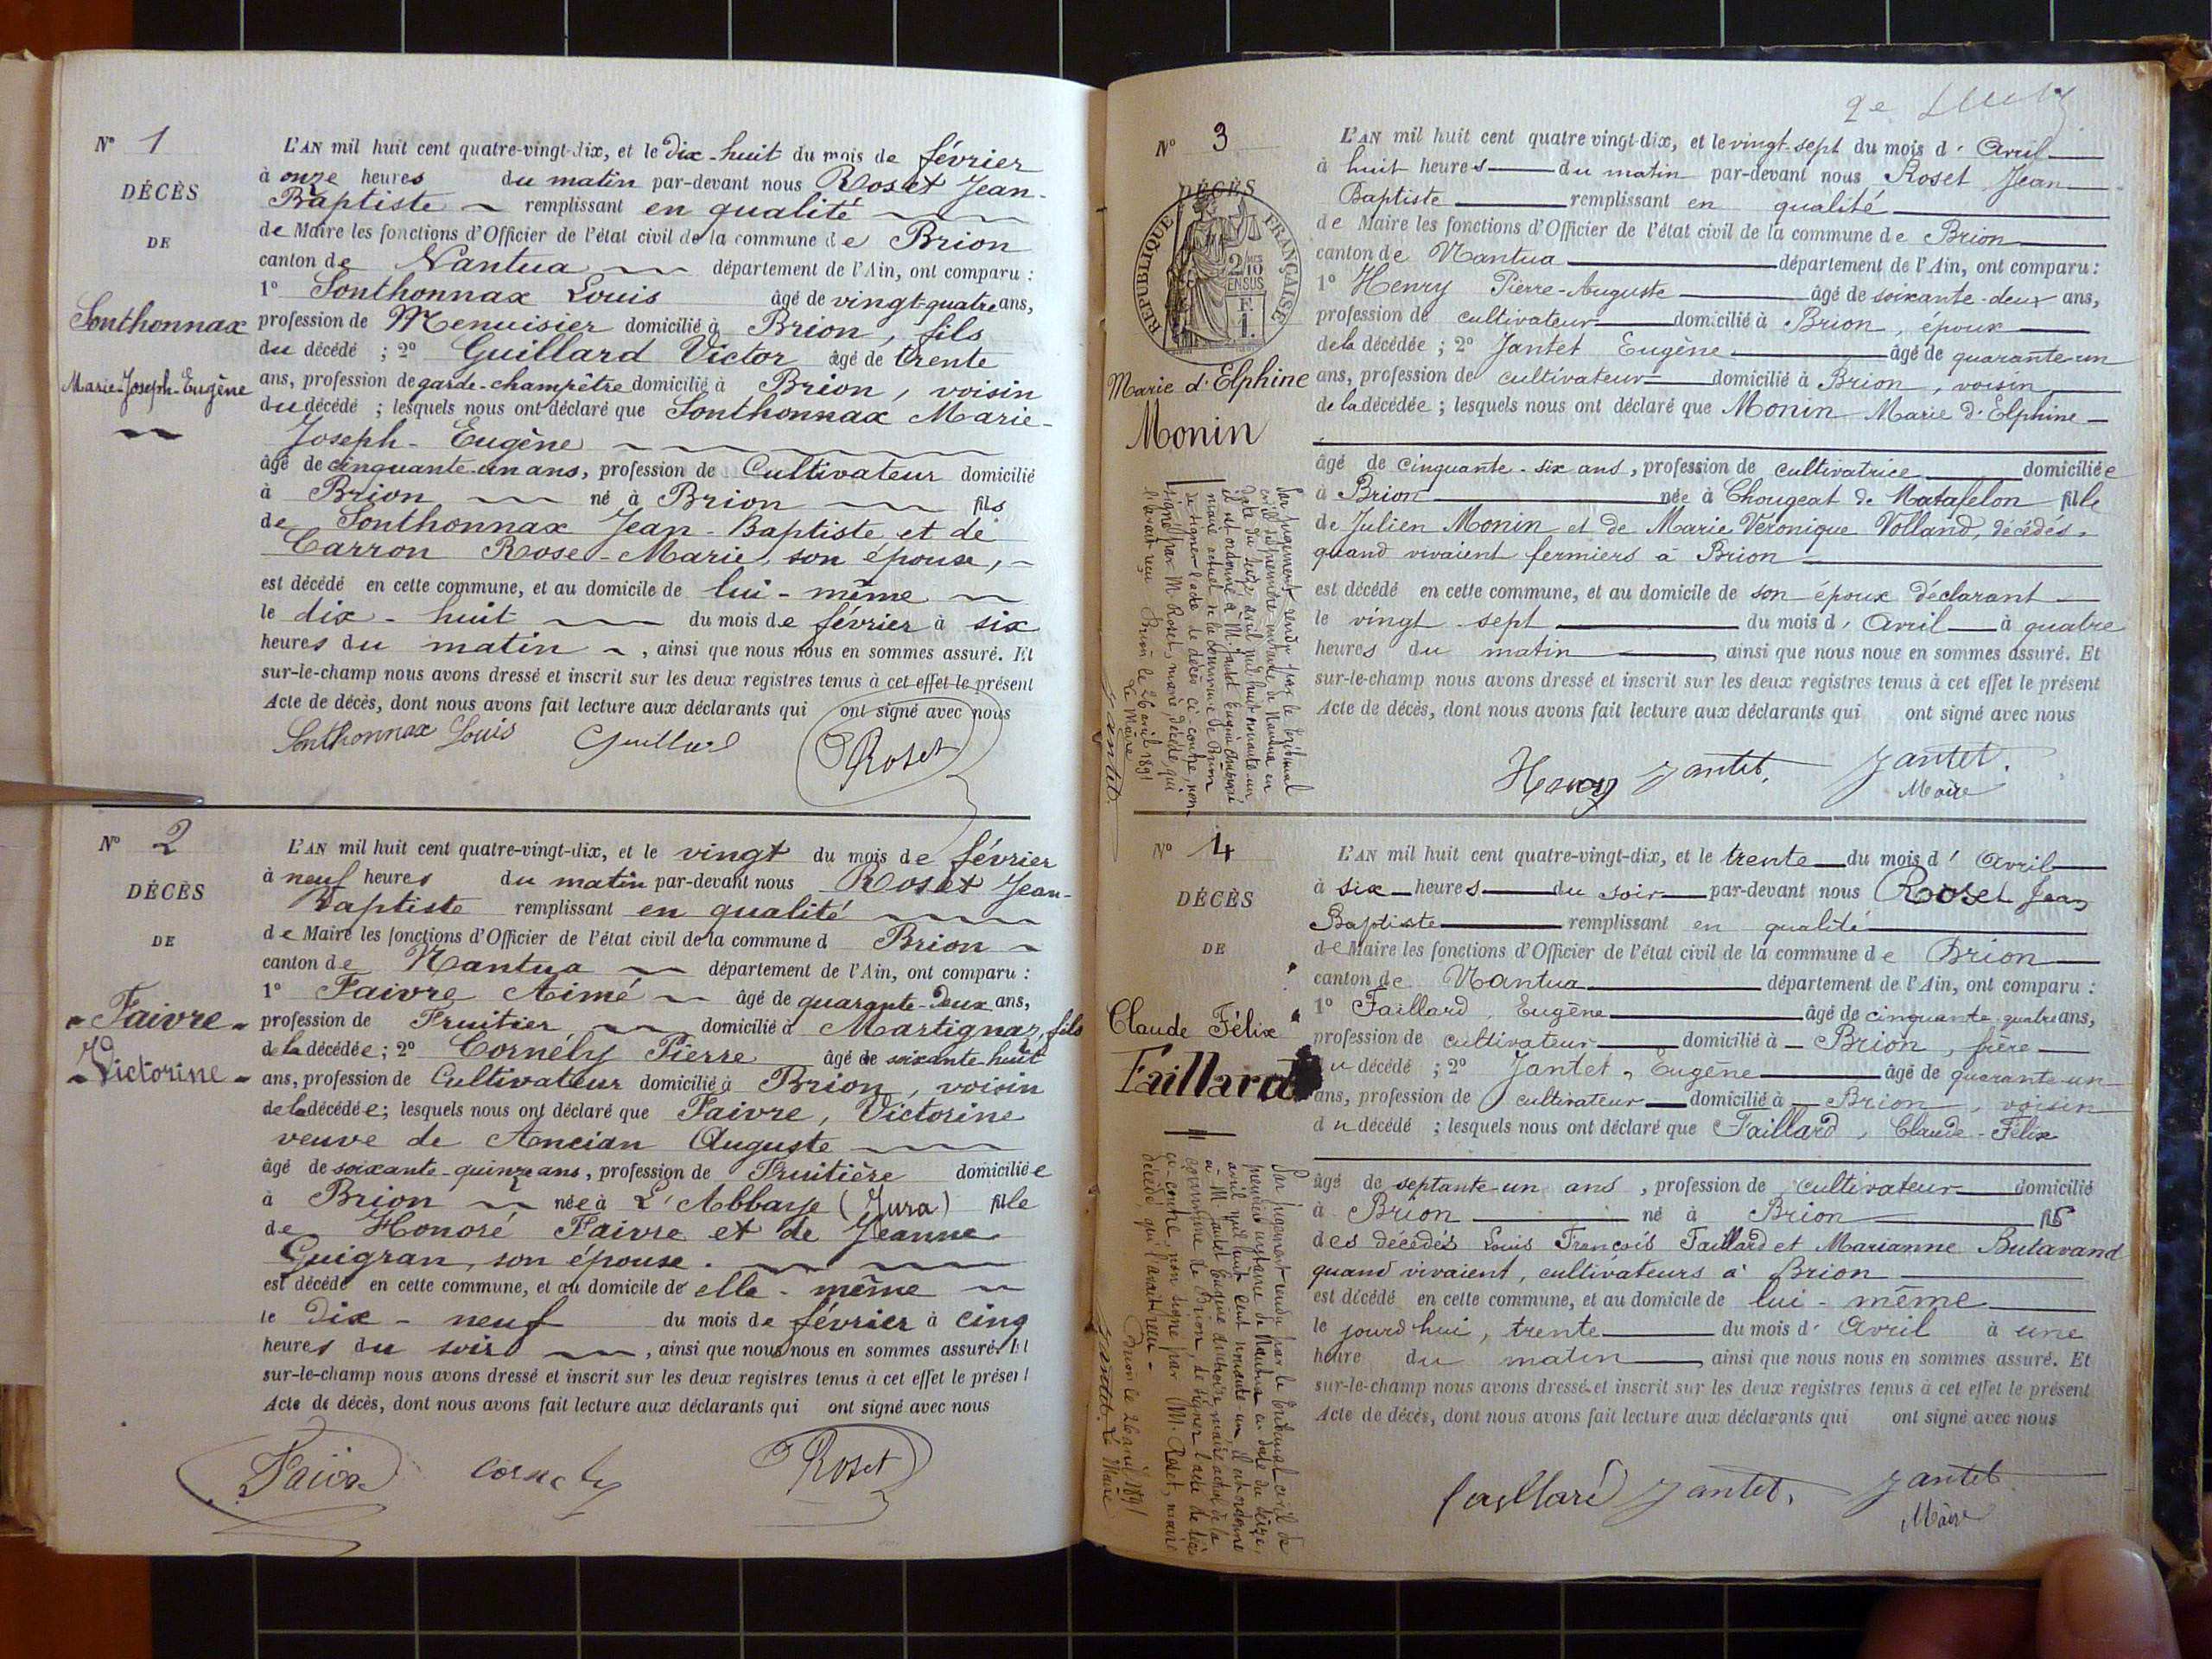 Nº 1
DÉCÈS
DE
Sonthonnax
Marie-Joseph-Eugène
L'AN mil huit cent quatre-vingt-dix, et le dix-huit du mois de février
à onze heures du matin par-devant nous Roset Jean-
Baptiste remplissant en qualité
de Maire les fonctions d'Officier de l'état civil de la commune de Brion
canton de Nantua département de l'Ain, ont comparu :
1º Sonthonnax Louis âgé de vingt-quatre ans,
profession de Menuisier domicilié à Brion, fils
du décédé ; 2º Guillard Victor âgé de trente
ans, profession de garde-champêtre domicilié à Brion, voisin
du décédé ; lesquels nous ont déclaré que Sonthonnax Marie-
Joseph-Eugène
âgé de cinquante-un ans, profession de Cultivateur domicilié
à Brion né à Brion fils
de Sonthonnax Jean-Baptiste et de
Carron Rose-Marie, son épouse,
est décédé en cette commune, et au domicile de lui-même
le dix-huit du mois de février à six
heures du matin, ainsi que nous nous en sommes assuré. Et
sur-le-champ nous avons dressé et inscrit sur les deux registres tenus à cet effet le présent
Acte de décès, dont nous avons fait lecture aux déclarants qui ont signé avec nous
Sonthonnax Louis Guillard Roset
Nº 2
DÉCÈS
DE
Faivre
Victorine
L'AN mil huit cent quatre-vingt-dix, et le vingt du mois de février
à neuf heures du matin par-devant nous Roset Jean-
Baptiste remplissant en qualité
de Maire les fonctions d'Officier de l'état civil de la commune d Brion
canton de Nantua département de l'Ain, ont comparu :
1º Faivre Aimé âgé de quarante-deux ans,
profession de Fruitier domicilié à Martignaz, fils
de la décédée ; 2º Cornély Pierre âgé de soixante huit
ans, profession de Cultivateur domicilié à Brion, voisin
de la décédée ; lesquels nous ont déclaré que Faivre, Victorine
veuve de Ancian Auguste
âgé de soixante-quinze ans, profession de Fruitière domiciliée
à Brion née à L'Abbaye (Jura) fille
de Honoré Faivre et de Jeanne
Guigran, son épouse.
est décédé en cette commune, et au domicile de elle-même
le dix-neuf du mois de février à cinq
heures du soir, ainsi que nous nous en sommes assuré. Et
sur-le-champ nous avons dressé et inscrit sur les deux registres tenus à cet effet le présent
Acte de décès, dont nous avons fait lecture aux déclarants qui ont signé avec nous
Faivre Cornély Roset
Nº 3
DÉCÈS
RÉPUBLIQUE FRANÇAISE
2/10 EN SUS
Marie d'Elphine
Monin
Par jugement rendu par le tribunal
civil de première instance de Nantua en
date du seize avril mil huit cent nonante-un,
il est ordonné à M. Jantet Eugène
maire actuel de la commune de Brion
de signer l'acte de décès ci-contre, non
signé par M. Roset, maire décédé, qui
l'avait reçu Brion le 26 avril 1891
Le Maire
Jantet.
L'AN mil huit cent quatre-vingt-dix, et le vingt-sept du mois d'Avril
à huit heures du matin par-devant nous Roset Jean
Baptiste remplissant en qualité
de Maire les fonctions d'Officier de l'état civil de la commune de Brion
canton de Nantua département de l'Ain, ont comparu :
1º Henry Pierre-Auguste âgé de soixante-deux ans,
profession de cultivateur domicilié à Brion, époux
de la décédée ; 2º Jantet Eugène âgé de quarante-un
ans, profession de cultivateur domicilié à Brion, voisin
de la décédée ; lesquels nous ont déclaré que Monin Marie d'Elphine
âgé de cinquante-six ans, profession de cultivatrice domiciliée
à Brion née à Chougeat de Matafelon fille
de Julien Monin et de Marie Véronique Volland, décédés.
quand vivaient fermiers à Brion
est décédé en cette commune, et au domicile de son époux déclarant
le vingt-sept du mois d'Avril à quatre
heures du matin, ainsi que nous nous en sommes assuré. Et
sur-le-champ nous avons dressé et inscrit sur les deux registres tenus à cet effet le présent
Acte de décès, dont nous avons fait lecture aux déclarants qui ont signé avec nous
Henry Jantet. Jantet.
Maire
Nº 4
DÉCÈS
DE
Claude Félix
Faillard
Par jugement rendu par le tribunal civil de
première instance de Nantua en date du seize
avril mil huit cent nonante-un, il est ordonné
à M. Jantet Eugène maire actuel de la
commune de Brion, de signer l'acte de décès
ci-contre, non signé par M. Roset, maire
décédé, qui l'avait reçu
Brion le 26 avril 1891
Jantet. Le Maire
L'AN mil huit cent quatre-vingt-dix, et le trente du mois d'Avril
à six heures du soir par-devant nous Roset Jean
Baptiste remplissant en qualité
de Maire les fonctions d'Officier de l'état civil de la commune de Brion
canton de Nantua département de l'Ain, ont comparu :
1º Faillard, Eugène âgé de cinquante-quatre ans,
profession de cultivateur domicilié à Brion, frère
du décédé ; 2º Jantet, Eugène âgé de quarante-un
ans, profession de cultivateur domicilié à Brion, voisin
du décédé ; lesquels nous ont déclaré que Faillard, Claude-Félix
âgé de septante-un ans, profession de cultivateur domicilié
à Brion né à Brion fils
des décédés Louis François Faillard et Marianne Butavand
quand vivaient, cultivateurs à Brion
est décédé en cette commune, et au domicile de lui-même
le jourd'hui, trente du mois d'Avril à une
heure du matin, ainsi que nous nous en sommes assuré. Et
sur-le-champ nous avons dressé et inscrit sur les deux registres tenus à cet effet le présent
Acte de décès, dont nous avons fait lecture aux déclarants qui ont signé avec nous
faillard Jantet. Jantet
Maire